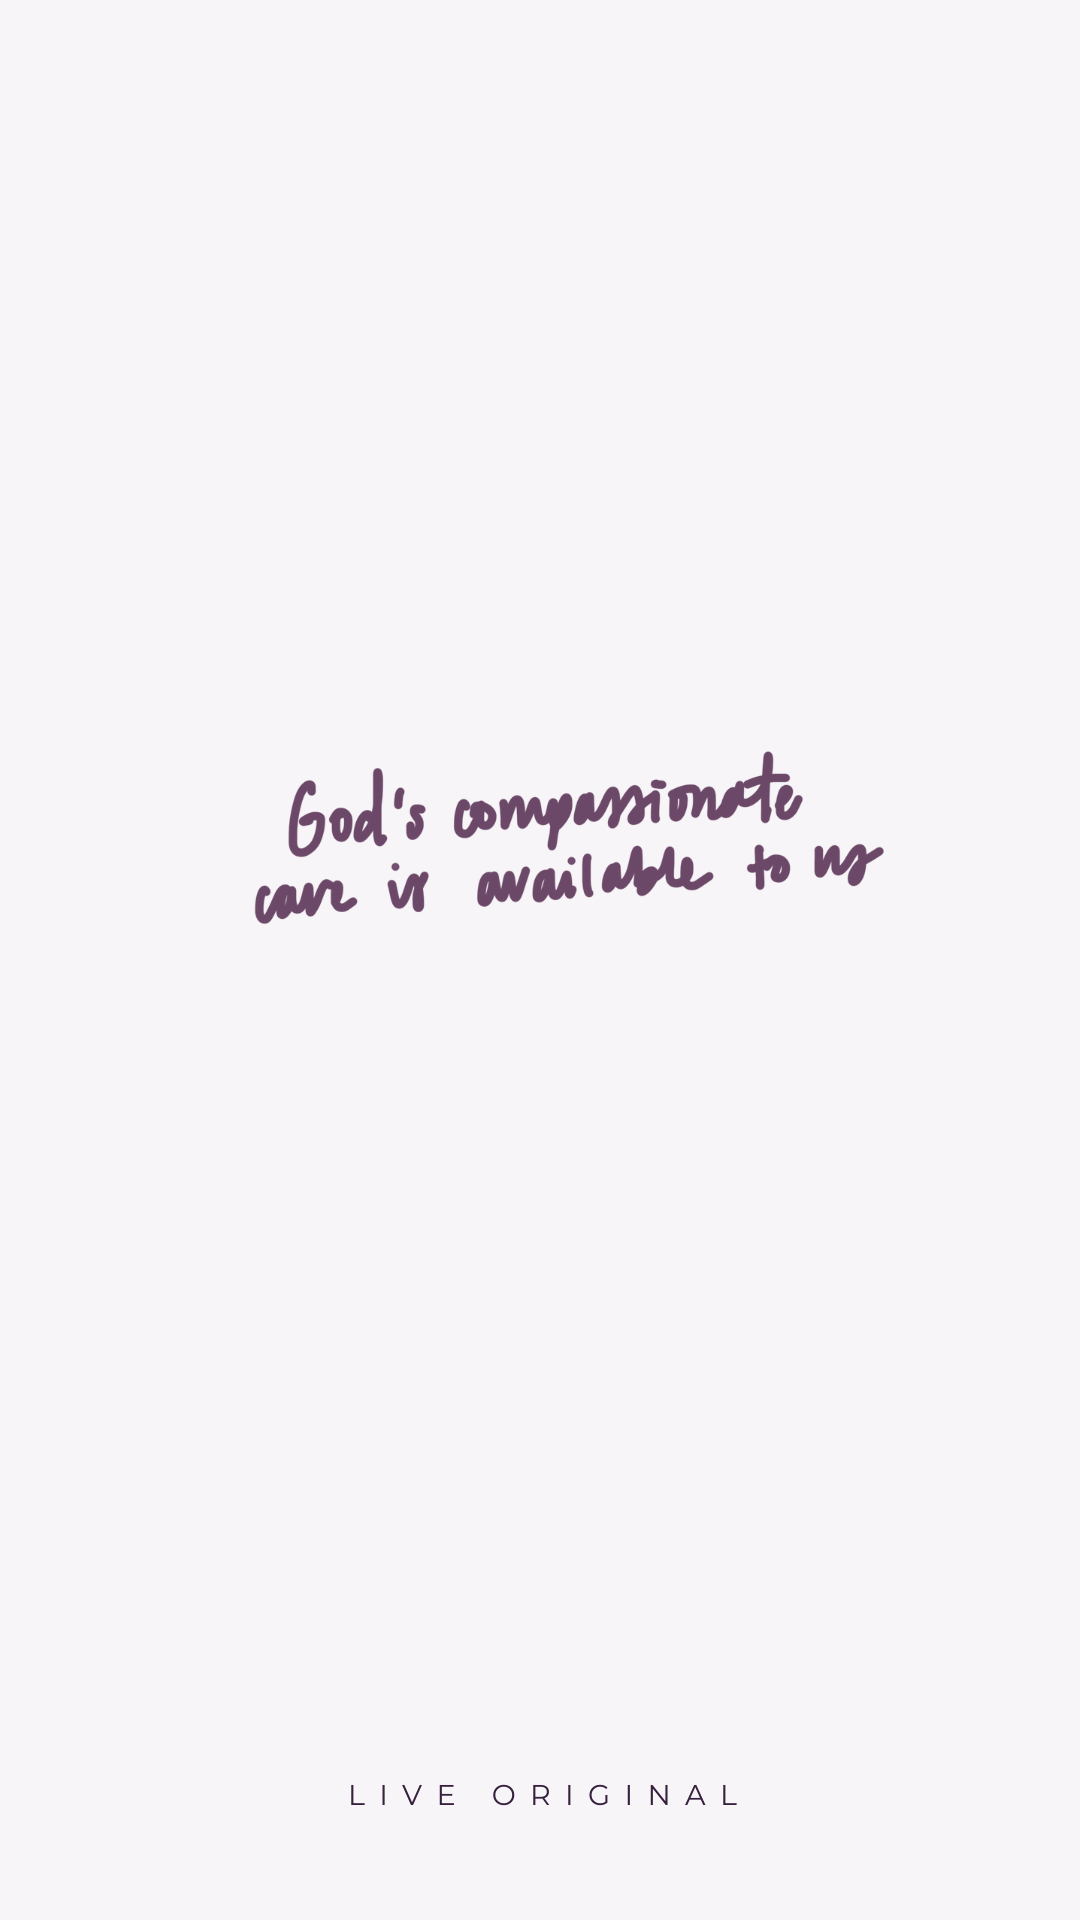 God's compassionate
care is available to us
LIVE ORIGINAL